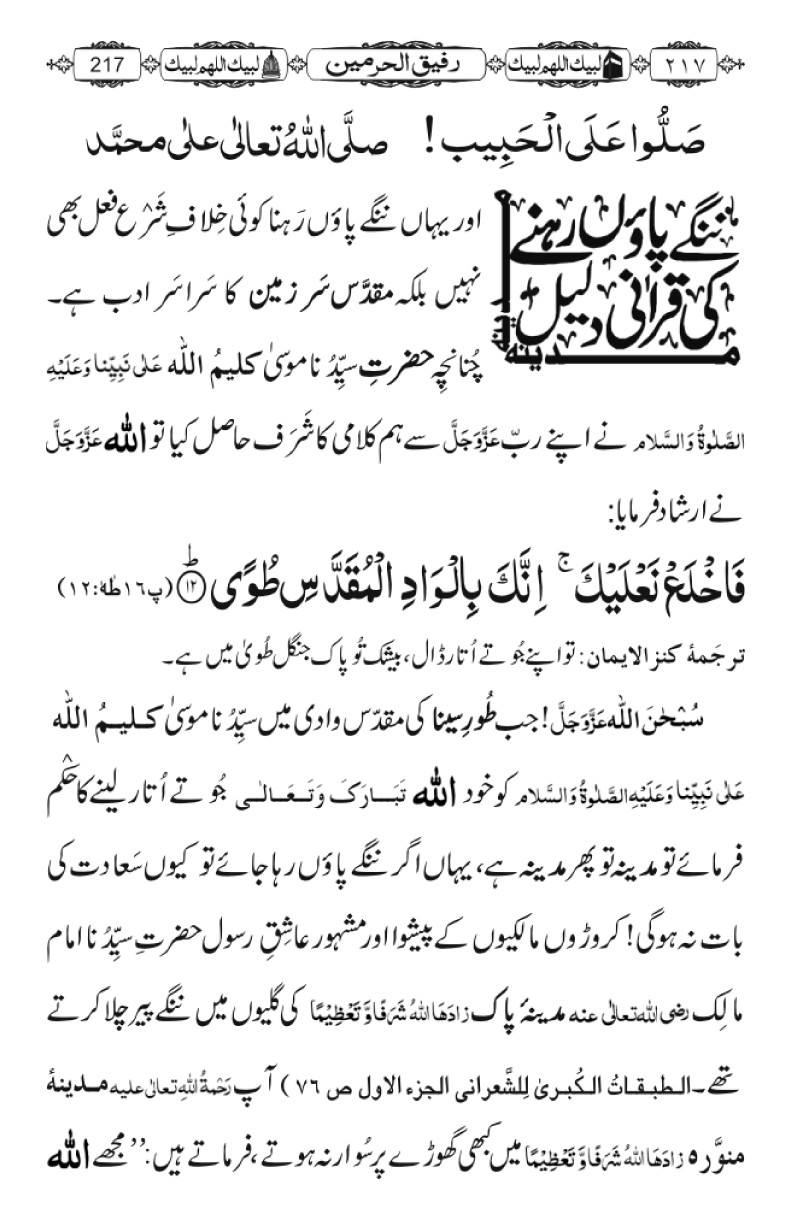 ۲۱۷ لبیك اللھم لبیك رفیق الحرمین لبیك اللھم لبیك 217
صَلُّوا عَلَی الْحَبِیب! صلَّی اللهُ تعالٰی علٰی محمَّد
ننگے پاؤں رہنے
کی قرآنی دلیل
مدینہ
مدینہ
اور یہاں ننگے پاؤں رَہنا کوئی خِلافِ شَرْع فعل بھی
نہیں بلکہ مقدَّس سَر زمین کا سَراسَر ادب ہے۔
چُنانچِہ حضرتِ سیِّدُ نا موسیٰ کلیمُ اللہ عَلٰی نَبِیِّنا وَعَلَیْهِ
الصَّلٰوةُ وَالسَّلام نے اپنے ربّ عَزَّوَجَلَّ سے ہم کلامی کا شَرَف حاصل کیا تو اللہ عَزَّوَجَلَّ
نے ارشاد فرمایا:
فَاخْلَعْ نَعْلَیْكَ ۚ اِنَّكَ بِالْوَادِ الْمُقَدَّسِ طُوًی ﴿۱۲﴾ؕ (پ۱۶طٰهٰ:۱۲)
ترجَمهٔ کنز الایمان: تو اپنے جُوتے اُتار ڈال، بیشک تُو پاک جنگل طُویٰ میں ہے۔
سُبْحٰنَ اللہ عَزَّوَجَلَّ! جب طُورِ سینا کی مقدّس وادی میں سیِّدُ نا موسیٰ کلیمُ اللہ
عَلٰی نَبِیِّنا وَعَلَیْهِ الصَّلٰوةُ وَالسَّلام کو خود اللہ تَبَارَكَ وَتَعَالٰی جُوتے اُتار لینے کا حُکْم
فرمائے تو مدینہ تو پھر مدینہ ہے، یہاں اگر ننگے پاؤں رہا جائے تو کیوں سَعادت کی
بات نہ ہوگی! کروڑوں مالکیوں کے پیشوا اور مشہور عاشقِ رسول حضرتِ سیِّدُ نا امام
مالِک رضی اللہ تعالٰی عنہ مدینۂ پاک زادَھَا اللهُ شَرَفًا وَّ تَعْظِیْمًا کی گلیوں میں ننگے پیر چلا کرتے
تھے۔ الطبقاتُ الکُبریٰ لِلشَّعرانی الجزء الاول ص ۷۶) آپ رَحْمةُ اللهِ تعالٰی علیه مدینۂ
منوَّرہ زادَھَا اللهُ شَرَفًا وَّ تَعْظِیْمًا میں کبھی گھوڑے پر سُوار نہ ہوتے، فرماتے ہیں: ’’مجھے اللہ